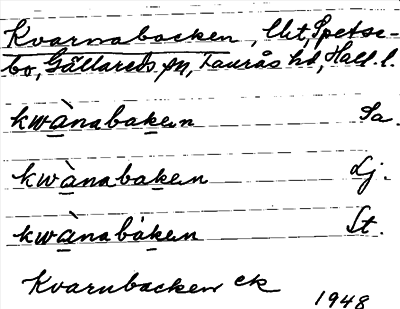 Kvarnabacken, Ut. Spetse-
bo, Gällareds sn, Faurås hd, Hall. l.
kwànabaken Sa.
kwànabaken Lj.
kwànabàken St.
Kvarnbacken ek
1948